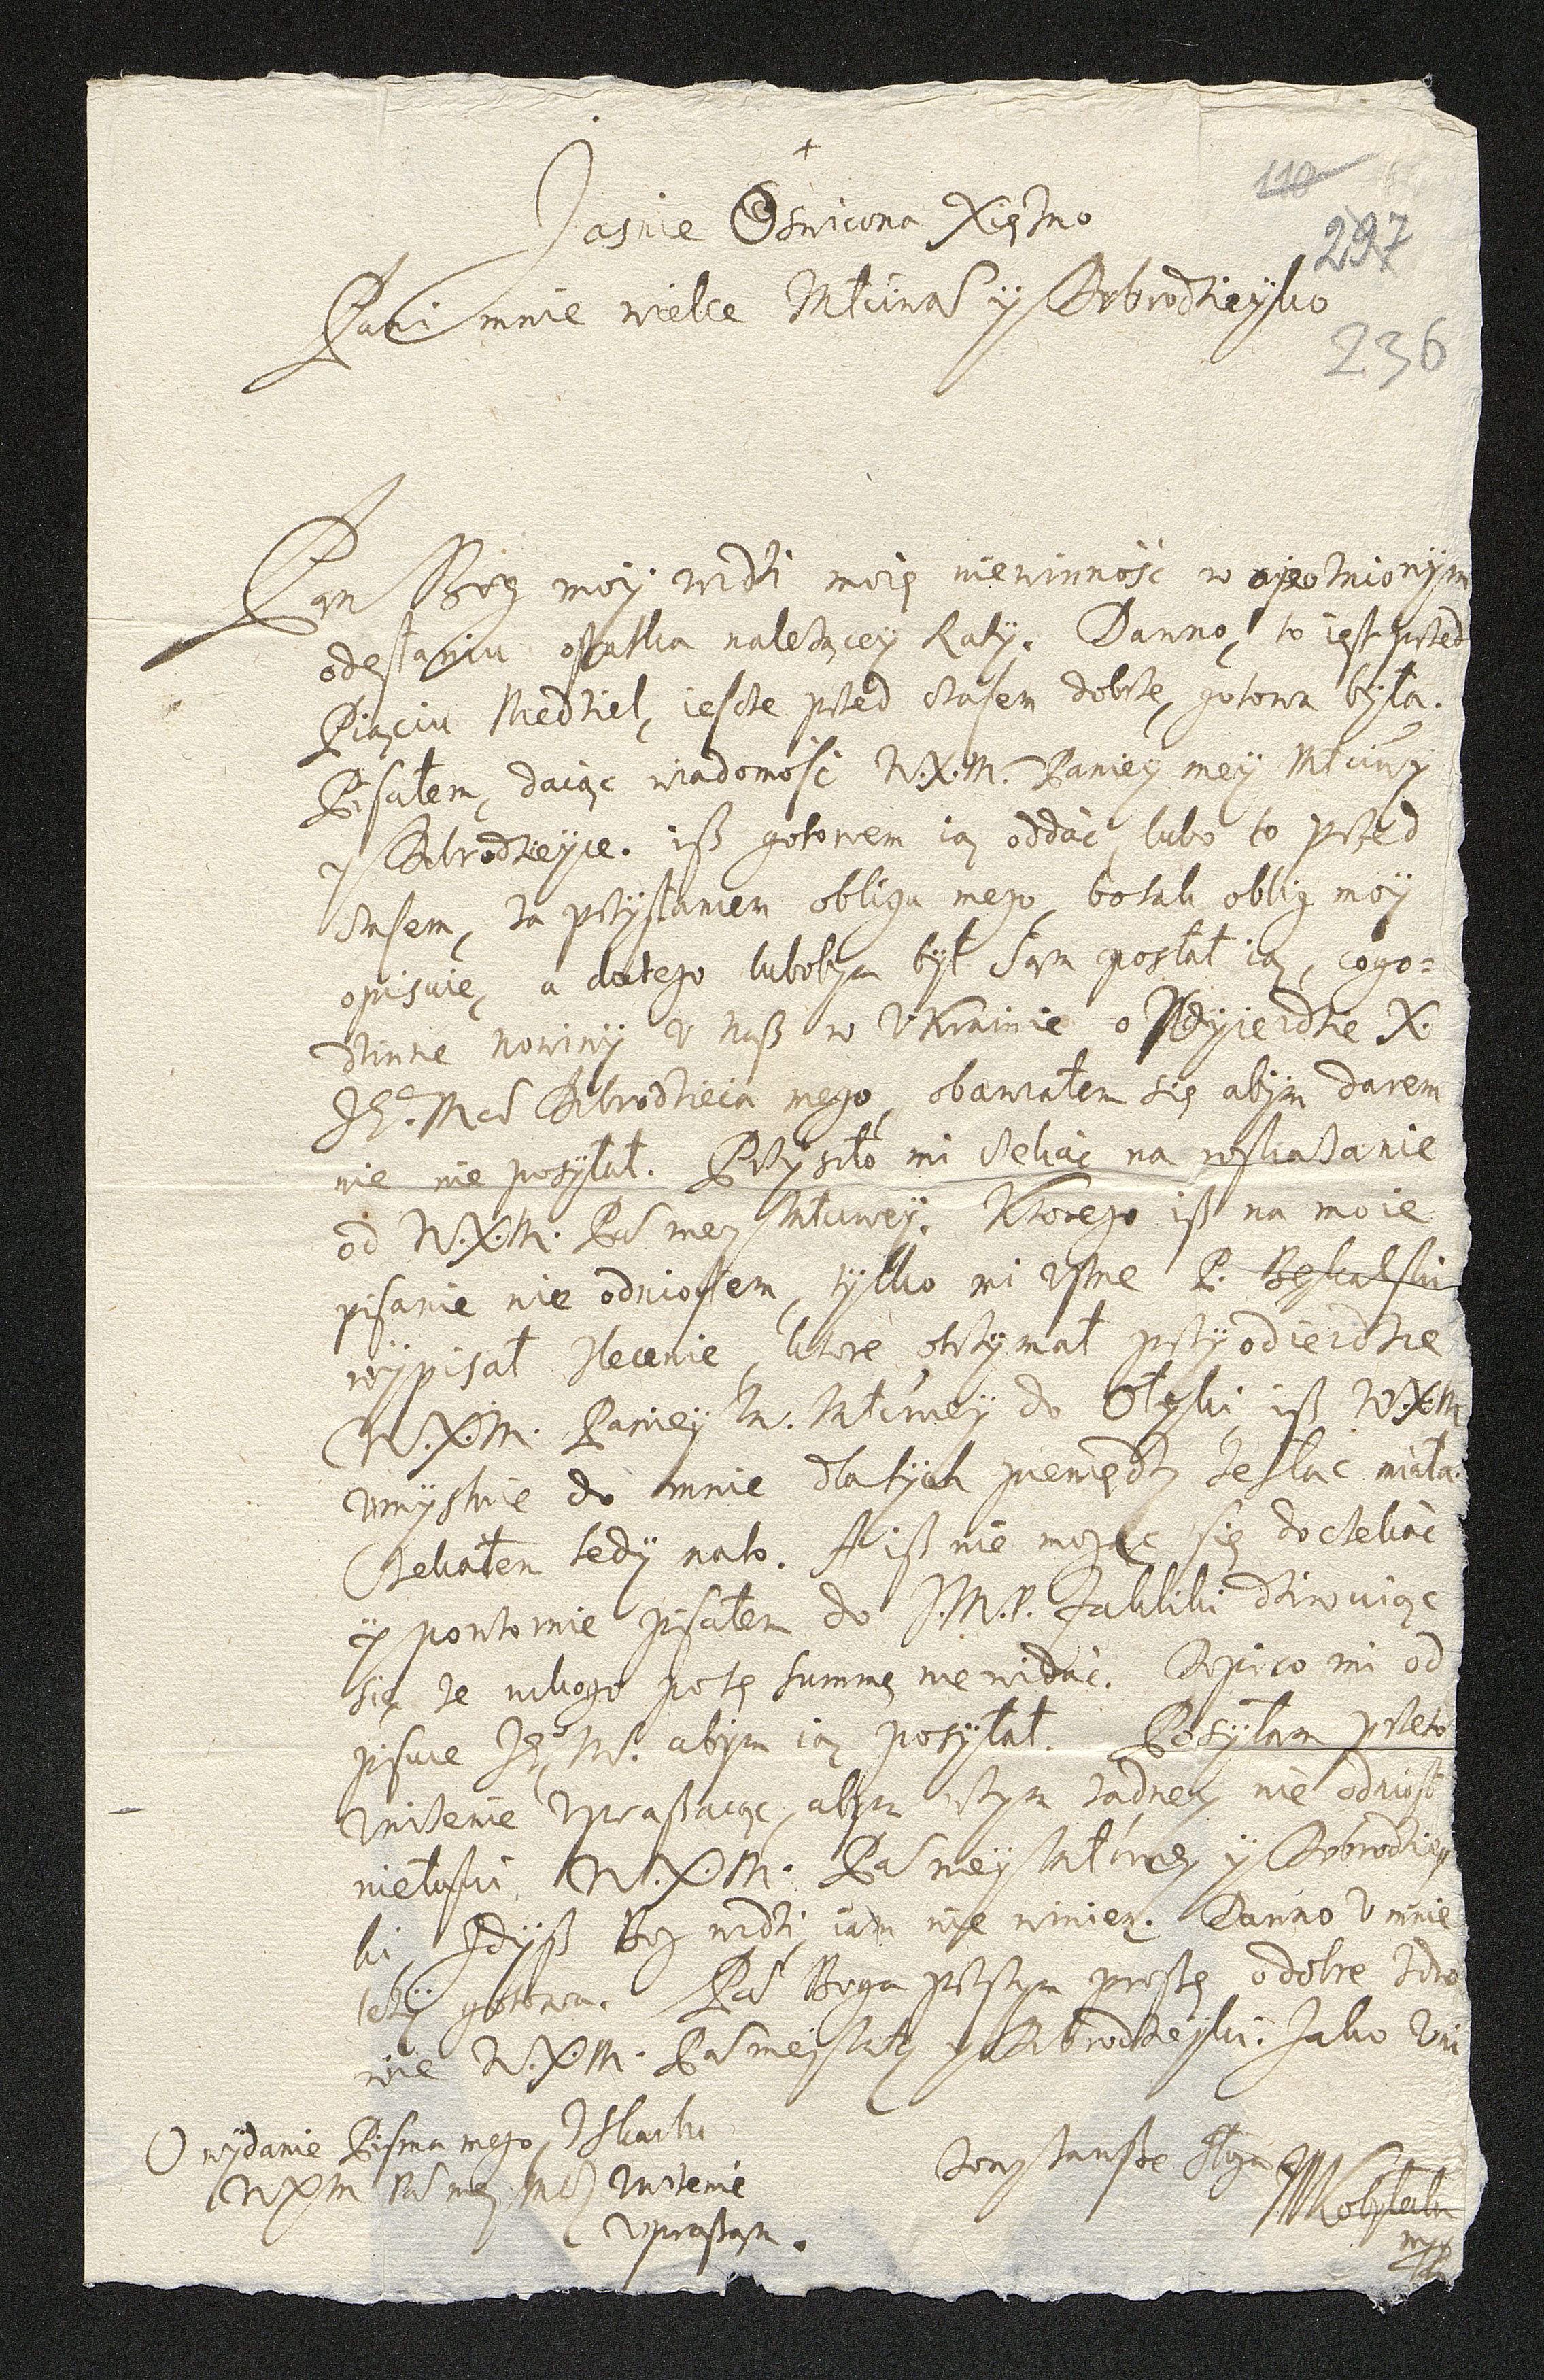 +
Jasnie Oswicona Xiężno
Pani mnie wielce Młciwa y Dobrodzieyko
110
297
236
Pan Bog moy widzi moię niewinność w opoznionym
odesłaniu ostatka należącey Raty. Dawno, to iest przed
Pięciu Niedziel, iescze przed czasem dobrze, gotowa była.
Pisałem, daiąc wiadomość W.X.M. Paniey mey Młciwey
y Dobrodzieyce. iß gotowem ią oddać, lubo to przed
czasem, za przysłaniem obligu mego, bo tak oblig moy
opisuie, a dlatego lubobym był sam posłał ią, cogo=
dzinne nowiny u naß w Ukrainie o Wyiezdzie X.
Je. Mci Dobrodzieia mego, obawiałem się abym darem
nie nie posyłał. Przyszło mi czekać na roskazanie
od W.X.M. Pa mey Młciwey. Ktorego iß na moie
pisanie nie odniosłem, tylko mi ustne P.
wypisał zlecenie, ktore otrzymał przy odiezdzie
W.X.M. Paniey M. Młciwey do Ołyki iß W.X.M
umyslnie do mnie dla tych pieniędzy zesłac miała.
Czekałem tedy nato. A iß nie mogąc się doczekać
y powtornie pisałem do J.M.P. dziwuiąc
się, że nikogo po tę summę nie widać. Dopiero mi od
pisuie Je M. abym ią posyłał. Posyłam przeto
unizenie upraßaiąc, abym wtym żadney nie odniosł
niełaski W.X.M. Pa mey Młciwey y Dobrodziey
ki, Gdyß Bog widzi, iam nie winien. Dawno u mnie
leży gotowa. Pa Boga przytym proszę o dobre zdro
wie W.X.M. Pa mey Młey y Dobrodzieyki. Jako Uni
żenszy Sługa
O wydanie Pisma mego, z Skarbu
WXM Pa mey Mcy unizenie
upraßam.